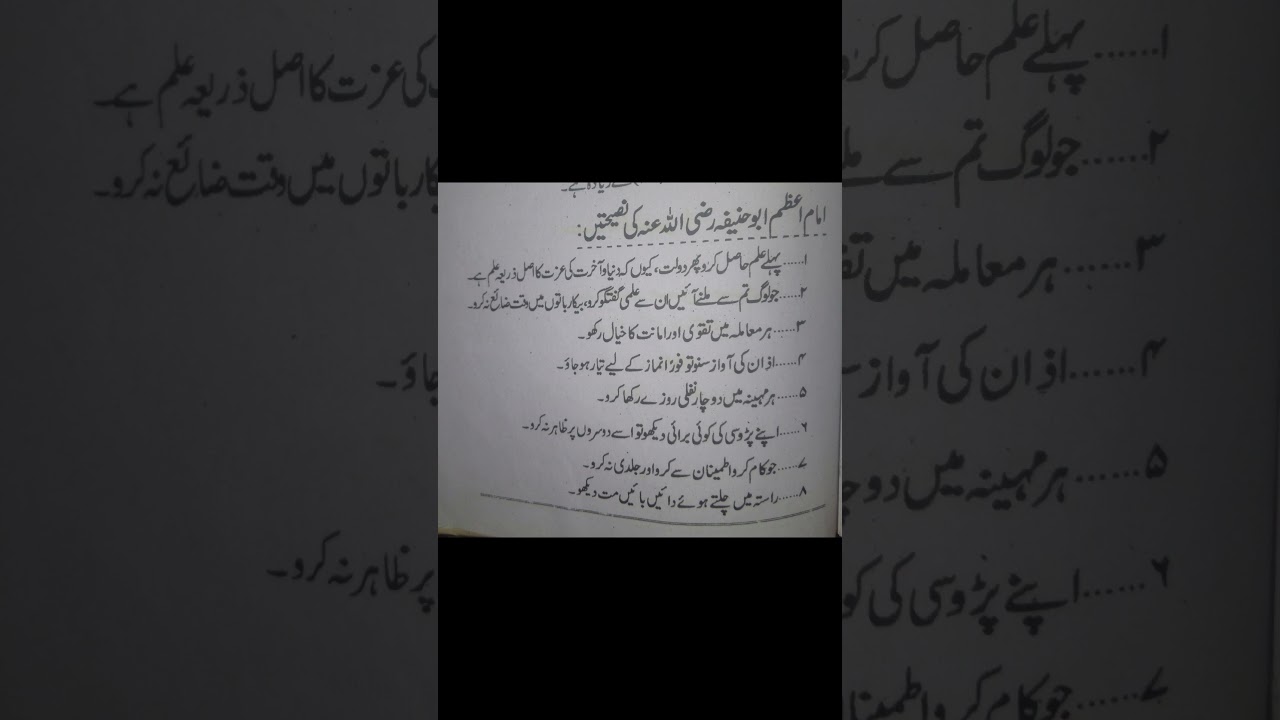 زیادہ ہے۔
امام اعظم ابو حنیفہ رضی اللہ عنہ کی نصیحتیں:
۱......پہلے علم حاصل کرو پھر دولت، کیوں کہ دنیا و آخرت کی عزت کا اصل ذریعہ علم ہے۔
۲......جو لوگ تم سے ملنے آئیں ان سے علمی گفتگو کرو، بیکار باتوں میں وقت ضائع نہ کرو۔
۳......ہر معاملہ میں تقوی اور امانت کا خیال رکھو۔
۴......اذان کی آواز سنو تو فوراً نماز کے لیے تیار ہو جاؤ۔
۵......ہر مہینہ میں دو چار نفلی روزے رکھا کرو۔
۶......اپنے پڑوسی کی کوئی برائی دیکھو تو اسے دوسروں پر ظاہر نہ کرو۔
۷......جو کام کرو اطمینان سے کرو اور جلدی نہ کرو۔
۸......راستہ میں چلتے ہوئے دائیں بائیں مت دیکھو۔